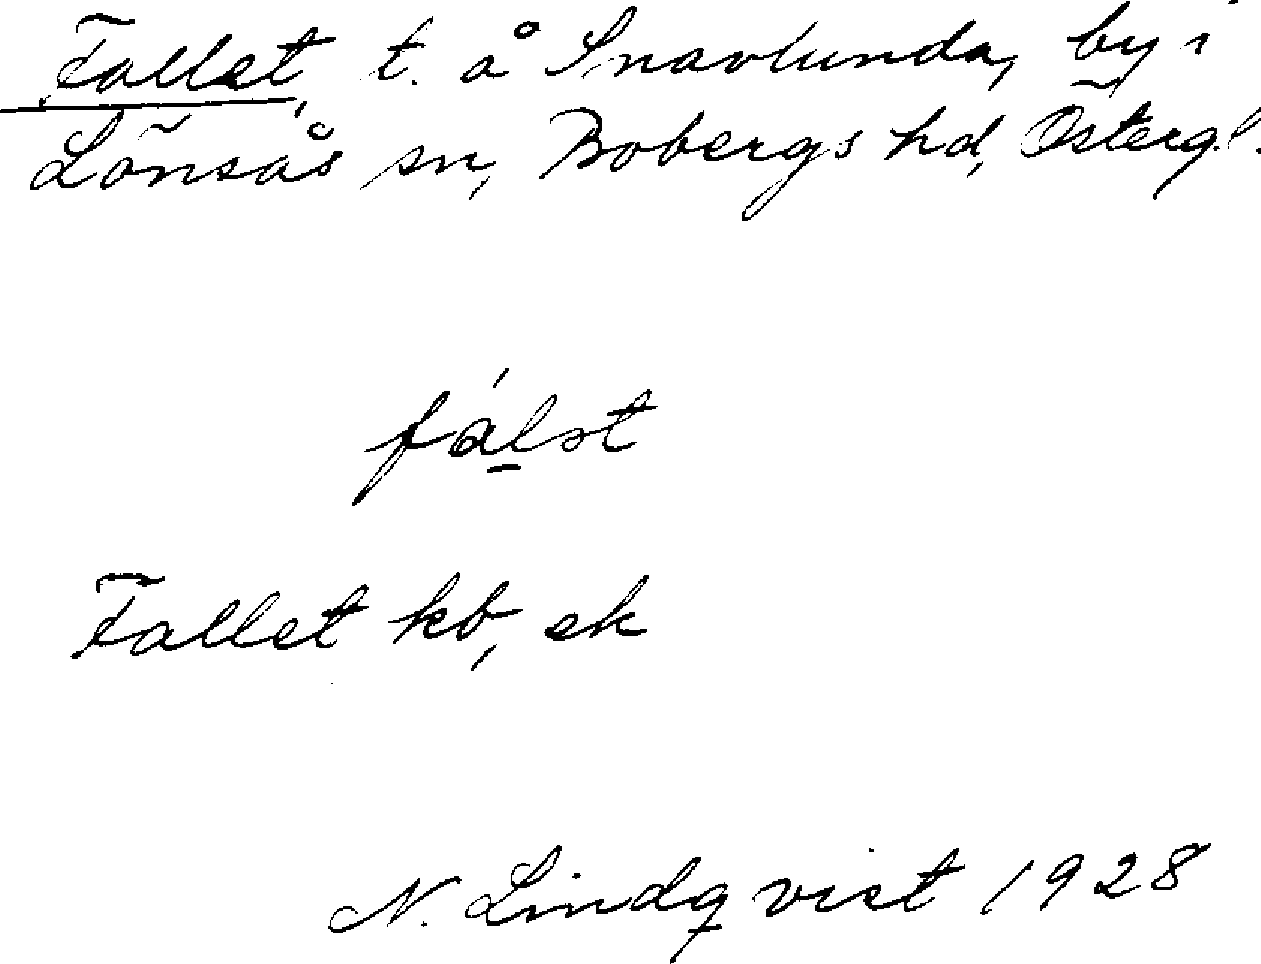 Fallet, t. å Snavlunda, by i
Lönsås sn, Bobergs hd, Östergl.
fálət
Fallet kb, ek
N. Lindqvist 1928